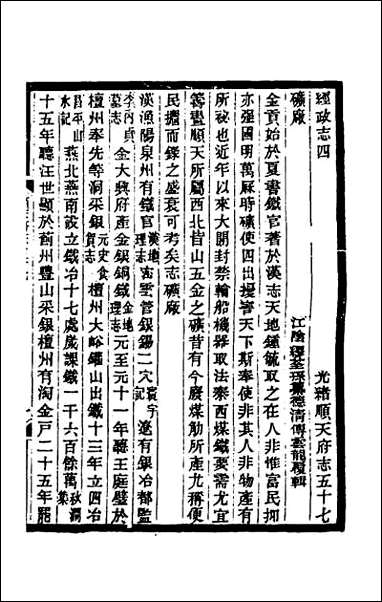 經政志四 光緒順天府志五十七
礦廠 江陰繆荃孫纂德清傅雲龍覆輯
金貢始於夏書鐵官著於漢志天地鍾毓取之在人非惟富民抑
亦强國明萬厤時礦使四出援害天下斯奉使非其人非物產有
所祕也近年以來大開封禁輪船機器取法泰西煤鐵要需尤宜
籌畫順天所屬西北皆山五金之礦昔有今廢煤觔所產尤稱便
民摭而錄之盛衰可考矣志礦廠
漢漁陽泉州有鐵官漢地理志密雲管銀錫二穴寰宇記遼有銀冶都監
李內貞墓志金大興府產金銀銅鐵金地理志元至元十一年聽王庭璧於
檀州奉先等洞采銀元史食貨志檀州大峪錐山出鐵十三年立四冶
昌平山水記燕北燕南設立鐵冶十七處歲課鐵一千六百餘萬秋澗集
十五年聽汪世顯於薊州豐山采銀檀州有淘金戶二十五年罷